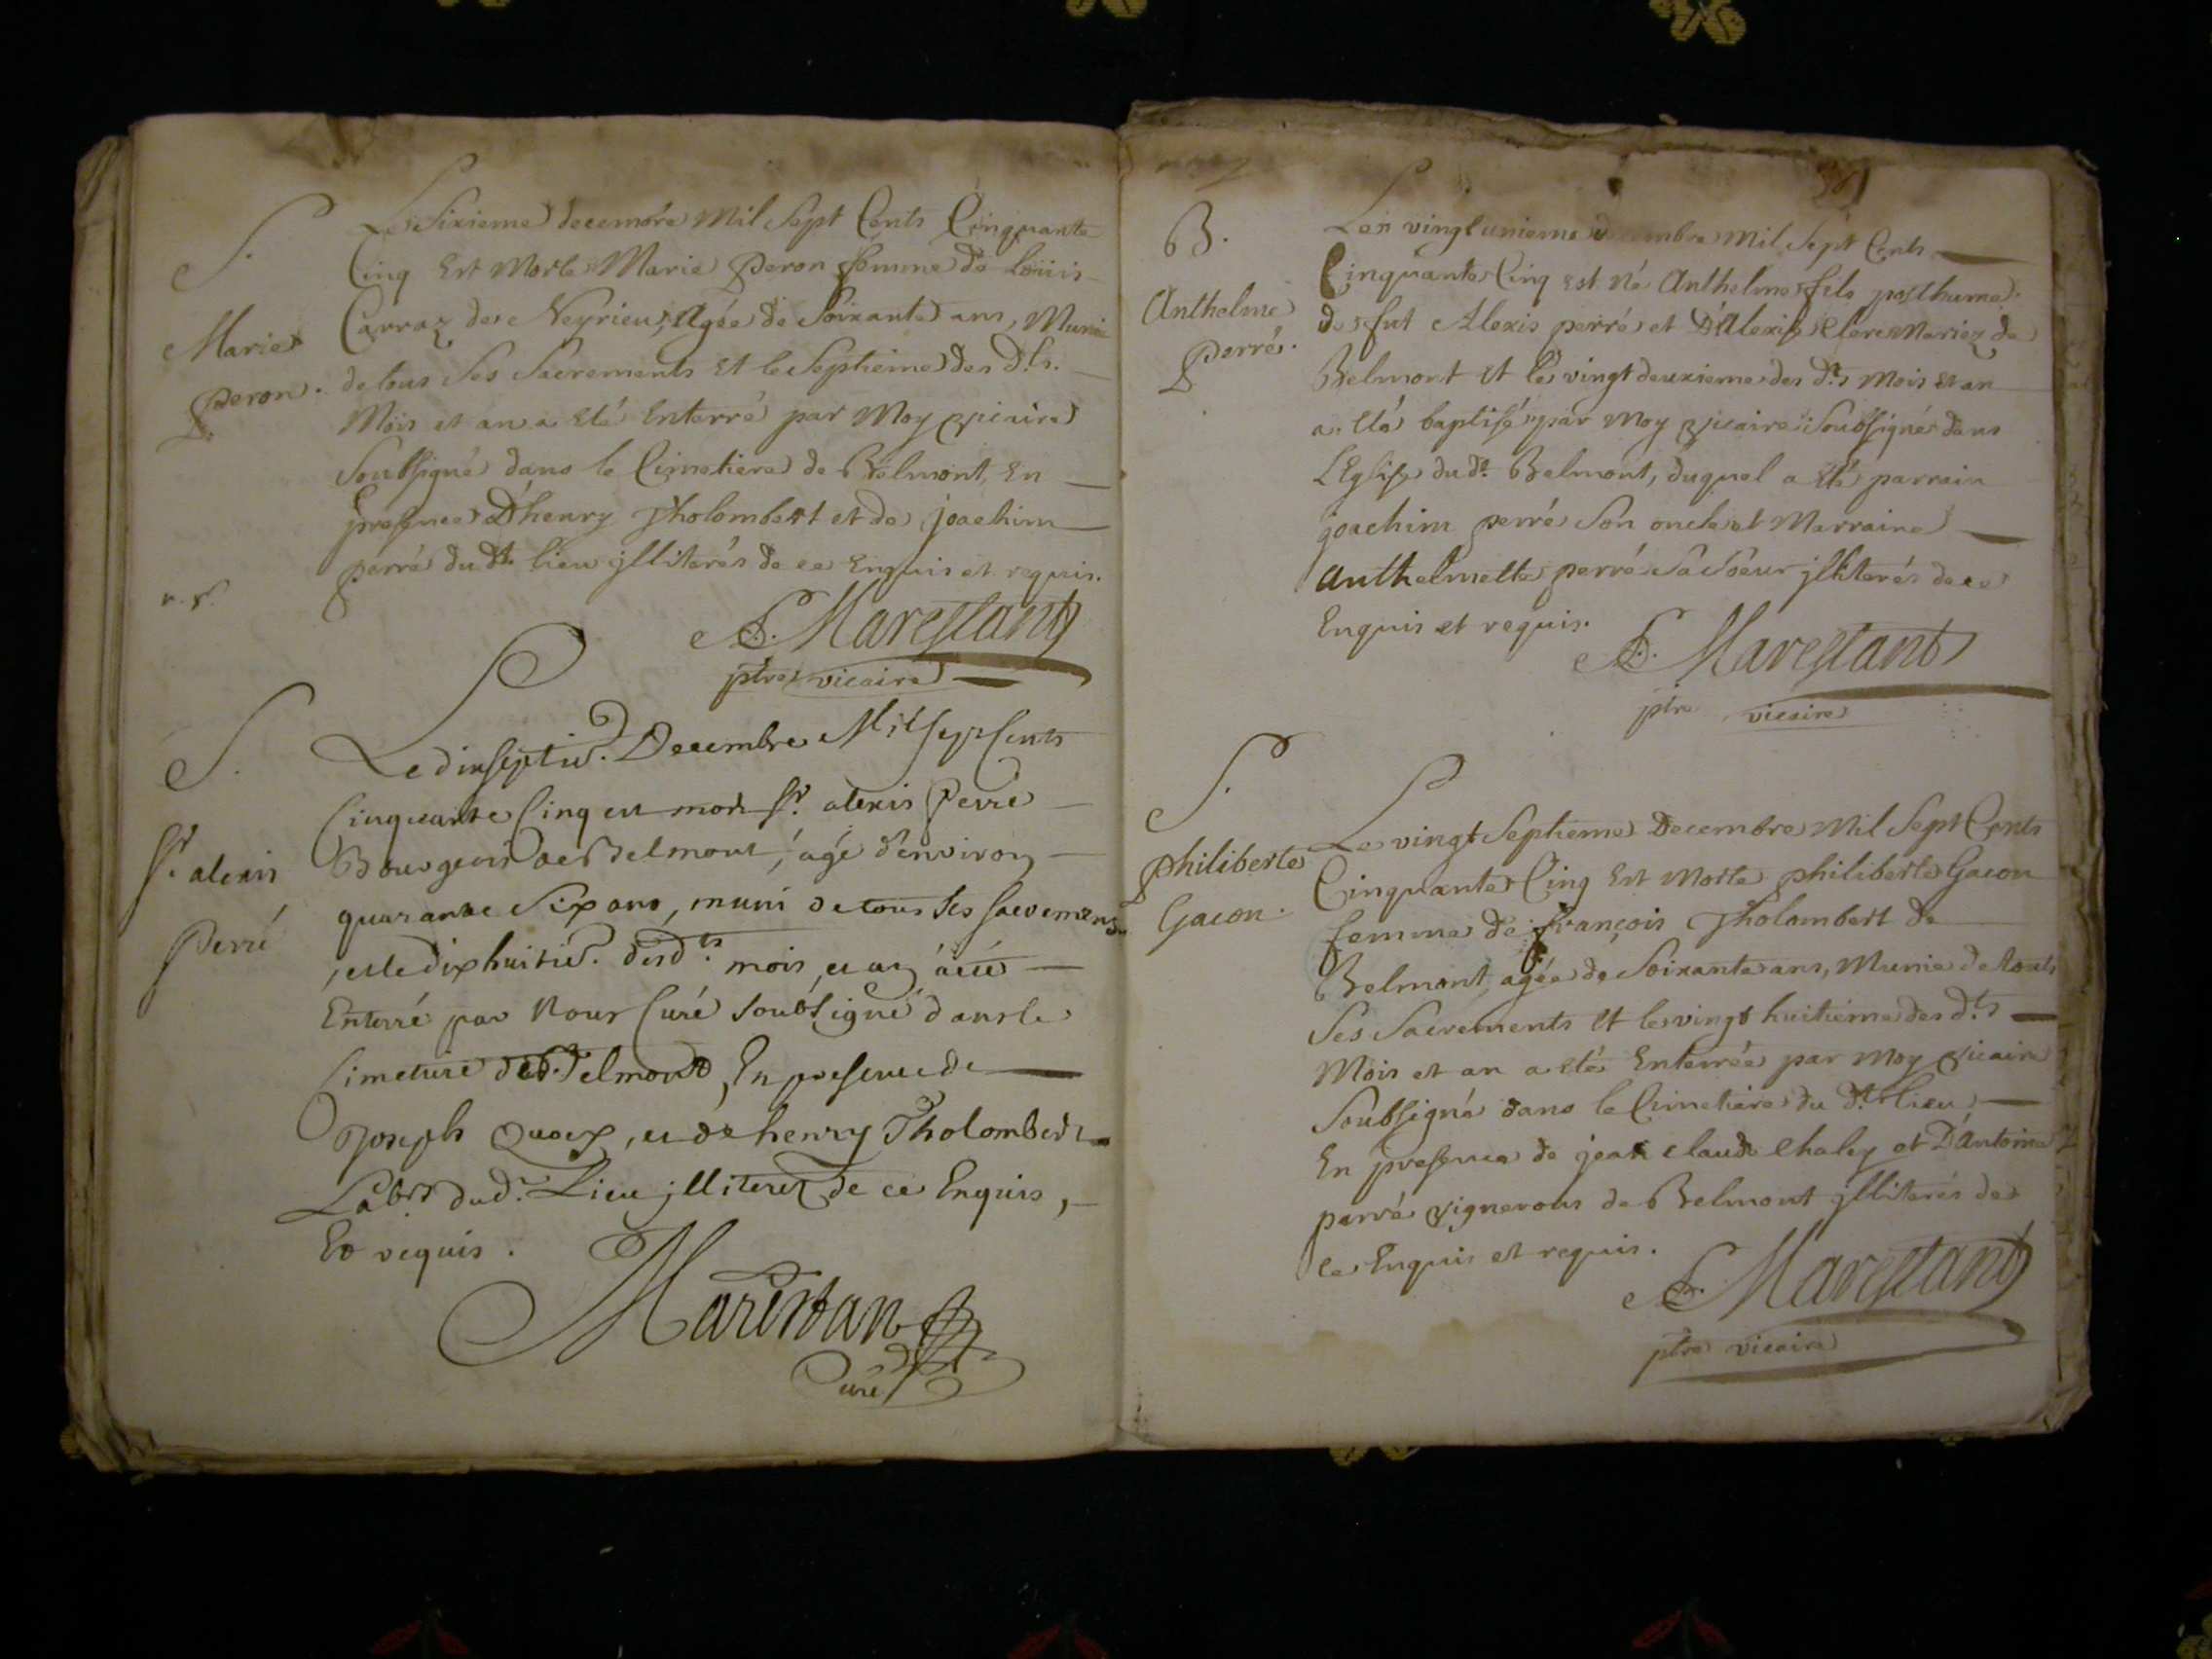 S.
Marie
peron.
Le Sixieme decembre Mil Sept Cents Cinquante
Cinq Est Morte Marie peron femme de Loüis
Carraz de Neyrieu, Agée de Soixante ans, Munie
de tous Ses Sacrements Et le Septieme des d.ts
Mois et an a Eté Enterré par Moy vicaire
Soubsigné dans le Cimetiere de Belmont, En
presence D'henry Tholombert et de joachim
perré du dt. lieu jlliterés de ce Enquis et requis.
Marestant
ptre vicaire
S.
Sr. alexis
Perré
Le dixseptie. Decembre Mil sept Cents
Cinquante Cinq est mort Sr. alexis Perré
Bourgeois de Belmont, agé d'environ
quarante Six ans, muni de tous Ses Sacements
, et le dix huitie. desd.ts mois, et an a été
Enterré par Nous Curé soubsigné dans le
Cimetiere de Belmont, En presence de
Joseph , et de henry Tholombert
Lab.rs dud. Lieu jlliterez de ce Enquis,
Et requis.
Marestan
Curé
B.
Anthelme
perré.
Le vingt unieme decembre Mil Sept Cents
Cinquante Cinq est né Anthelme fils posthume
de fut Alexis perré et D'Alexise Clere Mariez de
Belmont et le vingt deuxieme des d.ts Mois et an
a Eté baptisé par Moy vicaire Soubsigné dans
L'Eglise du dt. Belmont, duquel a Eté parrain
joachim perré Son oncle et Marraine
Anthelmette perré Sa Soeur jlliterés de ce
Enquis et requis.
Marestant
ptre vicaire
S.
philiberte
Gacon.
Le vingt Septieme Decembre Mil Sept Cents
Cinquante Cinq Est Morte philiberte Gacon
femme de françois Tholombert de
Belmont agée de Soixante ans, Munie de touts
Ses Sacrements et le vingt huitieme des d.ts
Mois et an a eté Enterrée par Moy vicaire
Soubsigné dans le Cimetiere du dt. Lieu
En presence de jean claude Chaley et D'Antoine
parré vignerons de Belmont jlliterés de
ce Enquis et requis.
Marestant
ptre vicaire